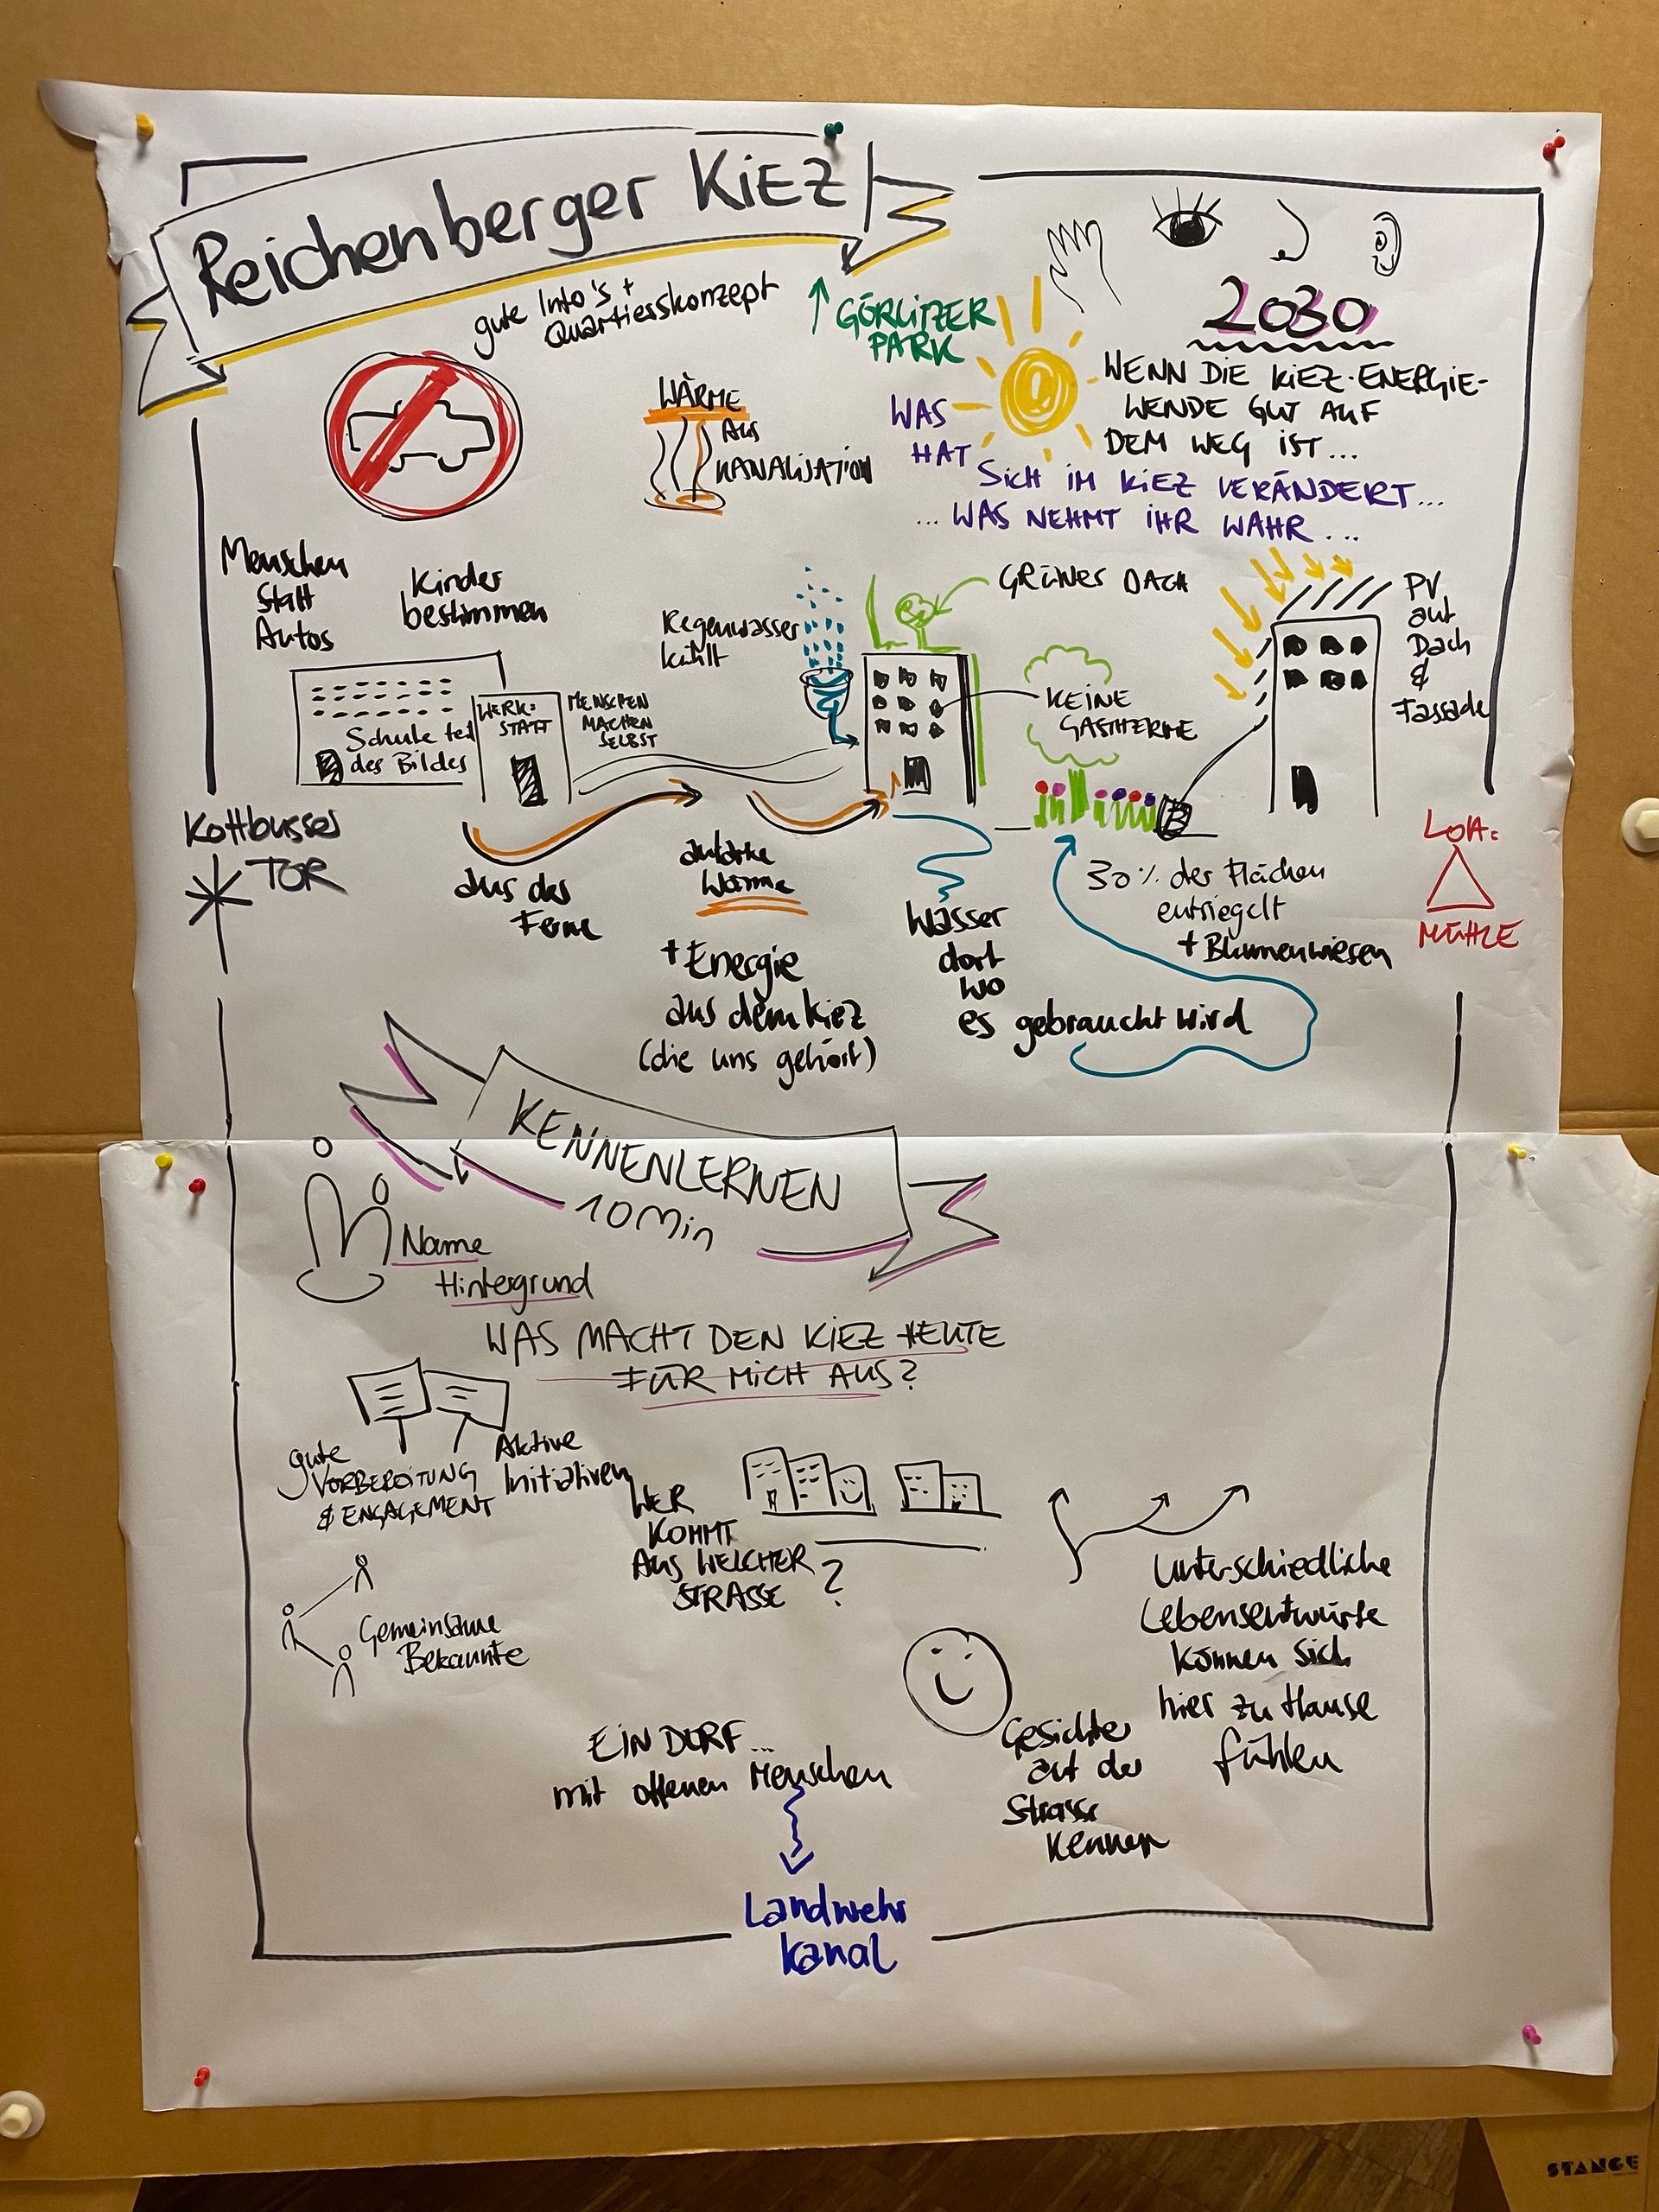 Reichenberger KiEZ
gute Info's +
Quartierskonzept
GÖRLITZER
PARK
2030
WENN DIE KIEZ-ENERGIE-
WENDE GUT AUF
DEM WEG IST...
WAS
HAT
SICH IM KIEZ VERÄNDERT...
... WAS NEHMT IHR WAHR ...
WÄRME
AUS
KANALISATION
Menschen
statt
Autos
Kinder
bestimmen
Regenwasser
kühlt
GRÜNES DACH
PV
auf
Dach
&
Fassade
KEINE
GASTHERME
Schule teil
des Bildes
WERK-
STATT
MENSCHEN
MACHEN
SELBST
Kottbusser
TOR
aus der
Ferne
autarke
Wärme
+ Energie
aus dem Kiez
(die uns gehört)
Wasser
dort
wo
es gebraucht wird
B
30% der Flächen
entriegelt
+ Blumenwiesen
LOH-
MÜHLE
KENNENLERNEN
10 Min
Name
Hintergrund
WAS MACHT DEN KIEZ HEUTE
FÜR MICH AUS?
gute
VORBEREITUNG
& ENGAGEMENT
Aktive
Initiativen
WER
KOMMT
AUS WELCHER
STRASSE ?
Gemeinsame
Bekannte
Unterschiedliche
Lebensentwürfe
können sich
hier zu Hause
fühlen
Gesichter
auf der
Strasse
kennen
EIN DORF...
mit offenen Menschen
Landwehr
kanal
STANGE